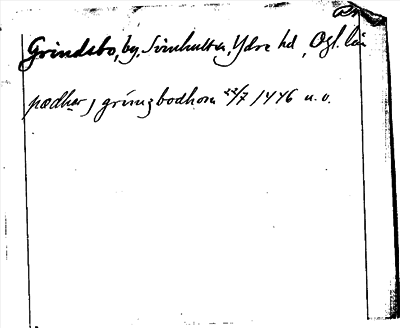 Grindsbo, by, Svinhults sn, Ydre hd, Ögl. län
pædhar j grinzbodhom 22/7 1446 u. o.